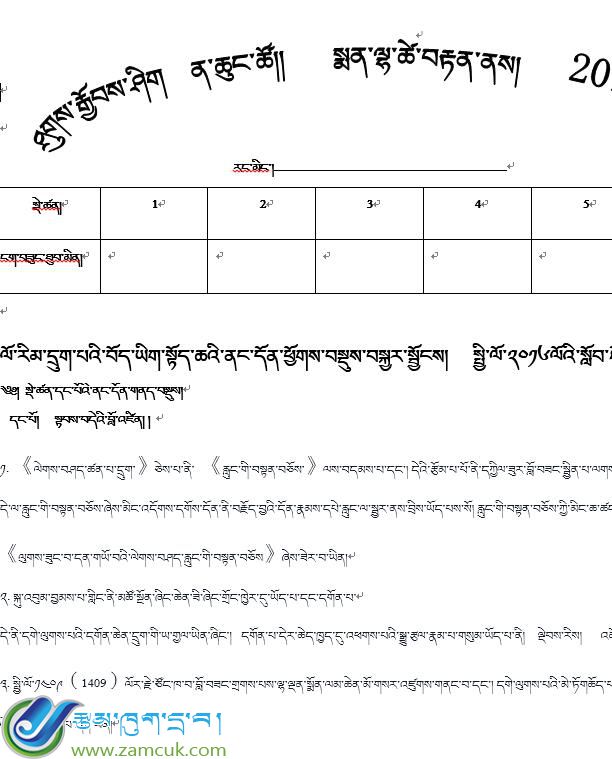 འགྲུས་རྒྱོབས་ཤིག ན་ཆུང་ཚོ།། སྨན་ལྷ་ཚེ་བརྟན་ནས། 20
རང་མིང་།
སྡེ་ཚན། 1 2 3 4 5
ངག་བཟུང་ཐུབ་མིན།
ལོ་རིམ་དྲུག་པའི་བོད་ཡིག་སྟོད་ཆའི་ནང་དོན་ཕྱོགས་བསྡུས་བསྐྱར་སྦྱོངས། སྤྱི་ལོ་༢༠༡༦ལོའི་སློབ་
༄༅། སྡེ་ཚན་དང་པོའི་ནང་དོན་གནད་བསྡུས།
དང་པོ། སྟབས་བདེའི་བློ་འཛིན། །
༡. 《ལེགས་བཤད་ཚན་པ་དྲུག་》ཅེས་པ་ནི་ 《རླུང་གི་བསྟན་བཅོས་》ལས་བདམས་པ་དང་། དེའི་རྩོམ་པ་པོ་ནི་དཀྱིལ་ཟུར་བློ་བཟང་སྦྱིན་པ་ལགས
དེ་ལ་རླུང་གི་བསྟན་བཅོས་ཞེས་མིང་འདོགས་དགོས་དོན་ནི་བརྗོད་བྱའི་དོན་རྣམས་དཔེ་རླུང་ལ་སྦྱར་ནས་བྲིས་ཡོད་པས་སོ། རླུང་གི་བསྟན་བཅོས་ཀྱི་མིང་ཆ་ཚང
《ལུགས་ཟུང་བ་དན་གཡོ་བའི་ལེགས་བཤད་རླུང་གི་བསྟན་བཅོས》ཞེས་ཟེར་བ་ཡིན།
༢. སྐུ་འབུམ་བྱམས་པ་གླིང་ནི་མཚོ་སྔོན་ཞིང་ཆེན་ཟི་ཞིང་གྲོང་ཁྱེར་དུ་ཡོད་པ་དང་དགོན་པ་
དེ་ནི་དགེ་ལུགས་པའི་དགོན་ཆེན་དྲུག་གི་ཡ་གྱལ་ཡིན་ཞིང་། དགོན་པ་དེར་ཆེད་ཁྱད་དུ་འཕགས་པའི་སྒྱུ་རྩལ་རྣམ་པ་གསུམ་ཡོད་པ་ནི། ལྡེབས་རིས།
༣. སྤྱི་ལོ་༡༤༠༩ （1409）ལོར་རྗེ་ཙོང་ཁ་བ་བློ་བཟང་གྲགས་པས་ལྷ་ལྡན་སྨོན་ལམ་ཆེན་མོ་གསར་འཛུགས་གནང་བ་དང་། དགེ་ལུགས་པའི་མེ་ཏོག་ཆོད་པ
རྩོམ་ཁུག་དྲ་བ།
www.zamcuk.com